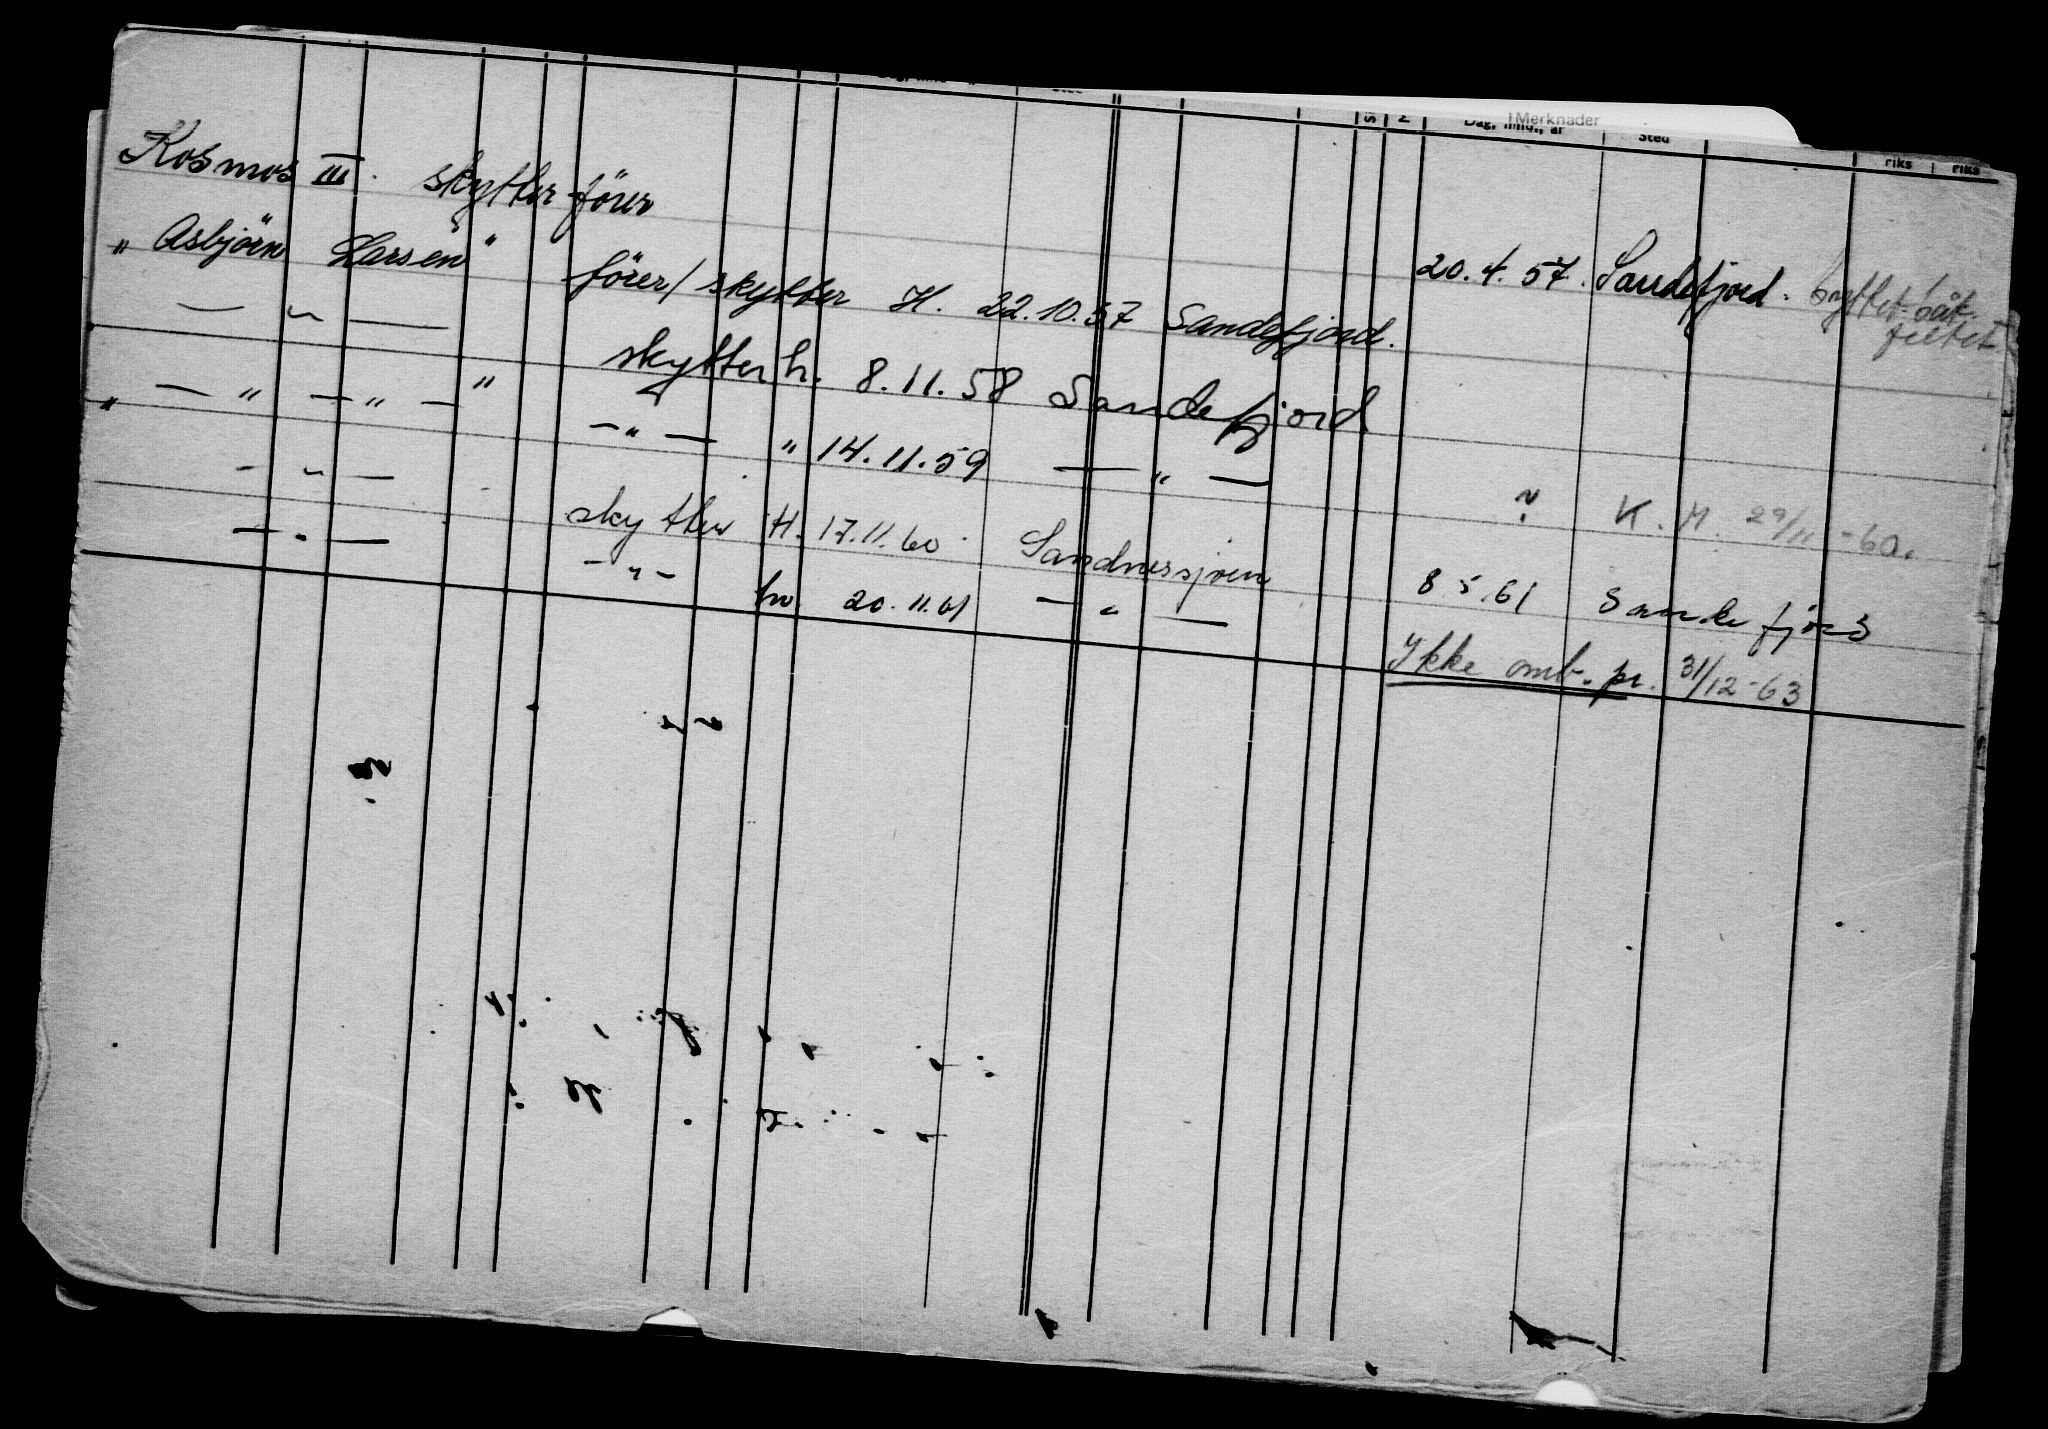 Merknader
Dag, mnd., år Sted riks riks
Kosmos III. skytter fører
" Asbjörn Larsen " förer/skytter H. 22.10.57 Sandefjord. 20.4.57. Sandefjord. byttet båt feltet
— " — skytter h. 8.11.58 Sandefjord
" — " — " — " — " — " 14.11.59 — " —
— " — skytter H. 17.11.60 Sandnessjøen ? K.M. 29/11-60.
— " — — " — hv. 20.11.61 — " — 8.5.61 Sandefjord
Ikke omb. pr. 31/12-63